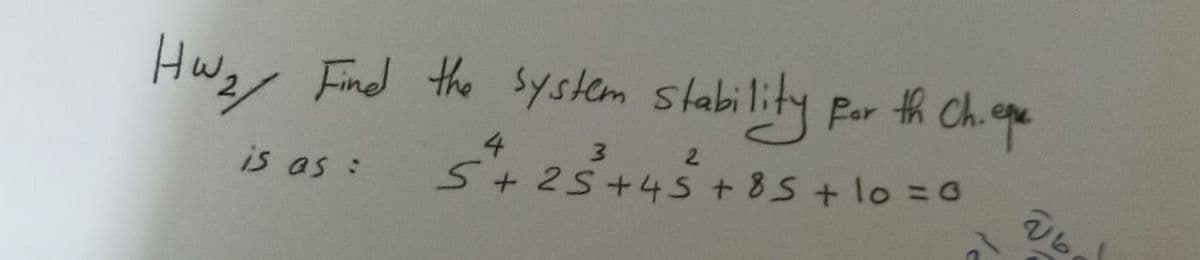 Hw2/ Find the system stability for th ch. equ
is as : S⁴ + 2S³ + 4S² + 8S + 10 = 0